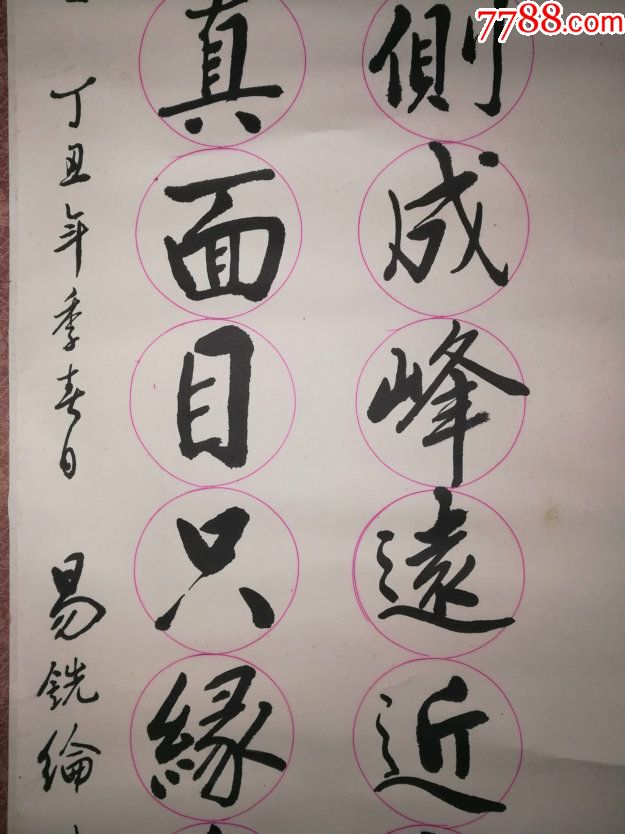 7788.com
側成峰遠近
真面目只緣
丁丑年季春日 易銑綸